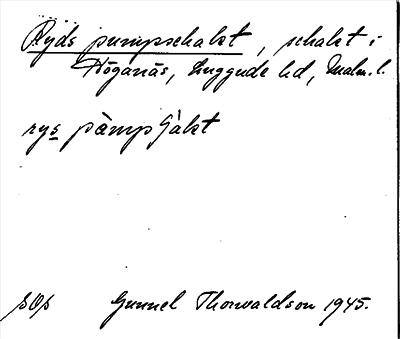 Ryds pumpschakt, schakt i
Höganäs, Luggude hd, Malm. l.
rys pàmpʃákt
SOS Gunnel Thorwaldson 1945.